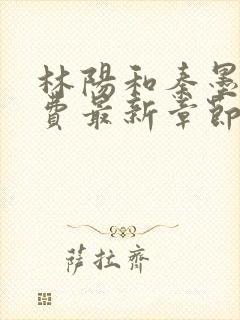 林陽和秦墨
費最新章節
薩拉齊